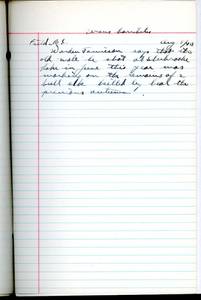 Ursus horribilis
Field, B.C. Aug 1/43
Warden Jamieson says that the
old male he shot at Sherbrooke
Lake in June this year was
working on the remains of a
bull elk killed by bear the
previous autumn!